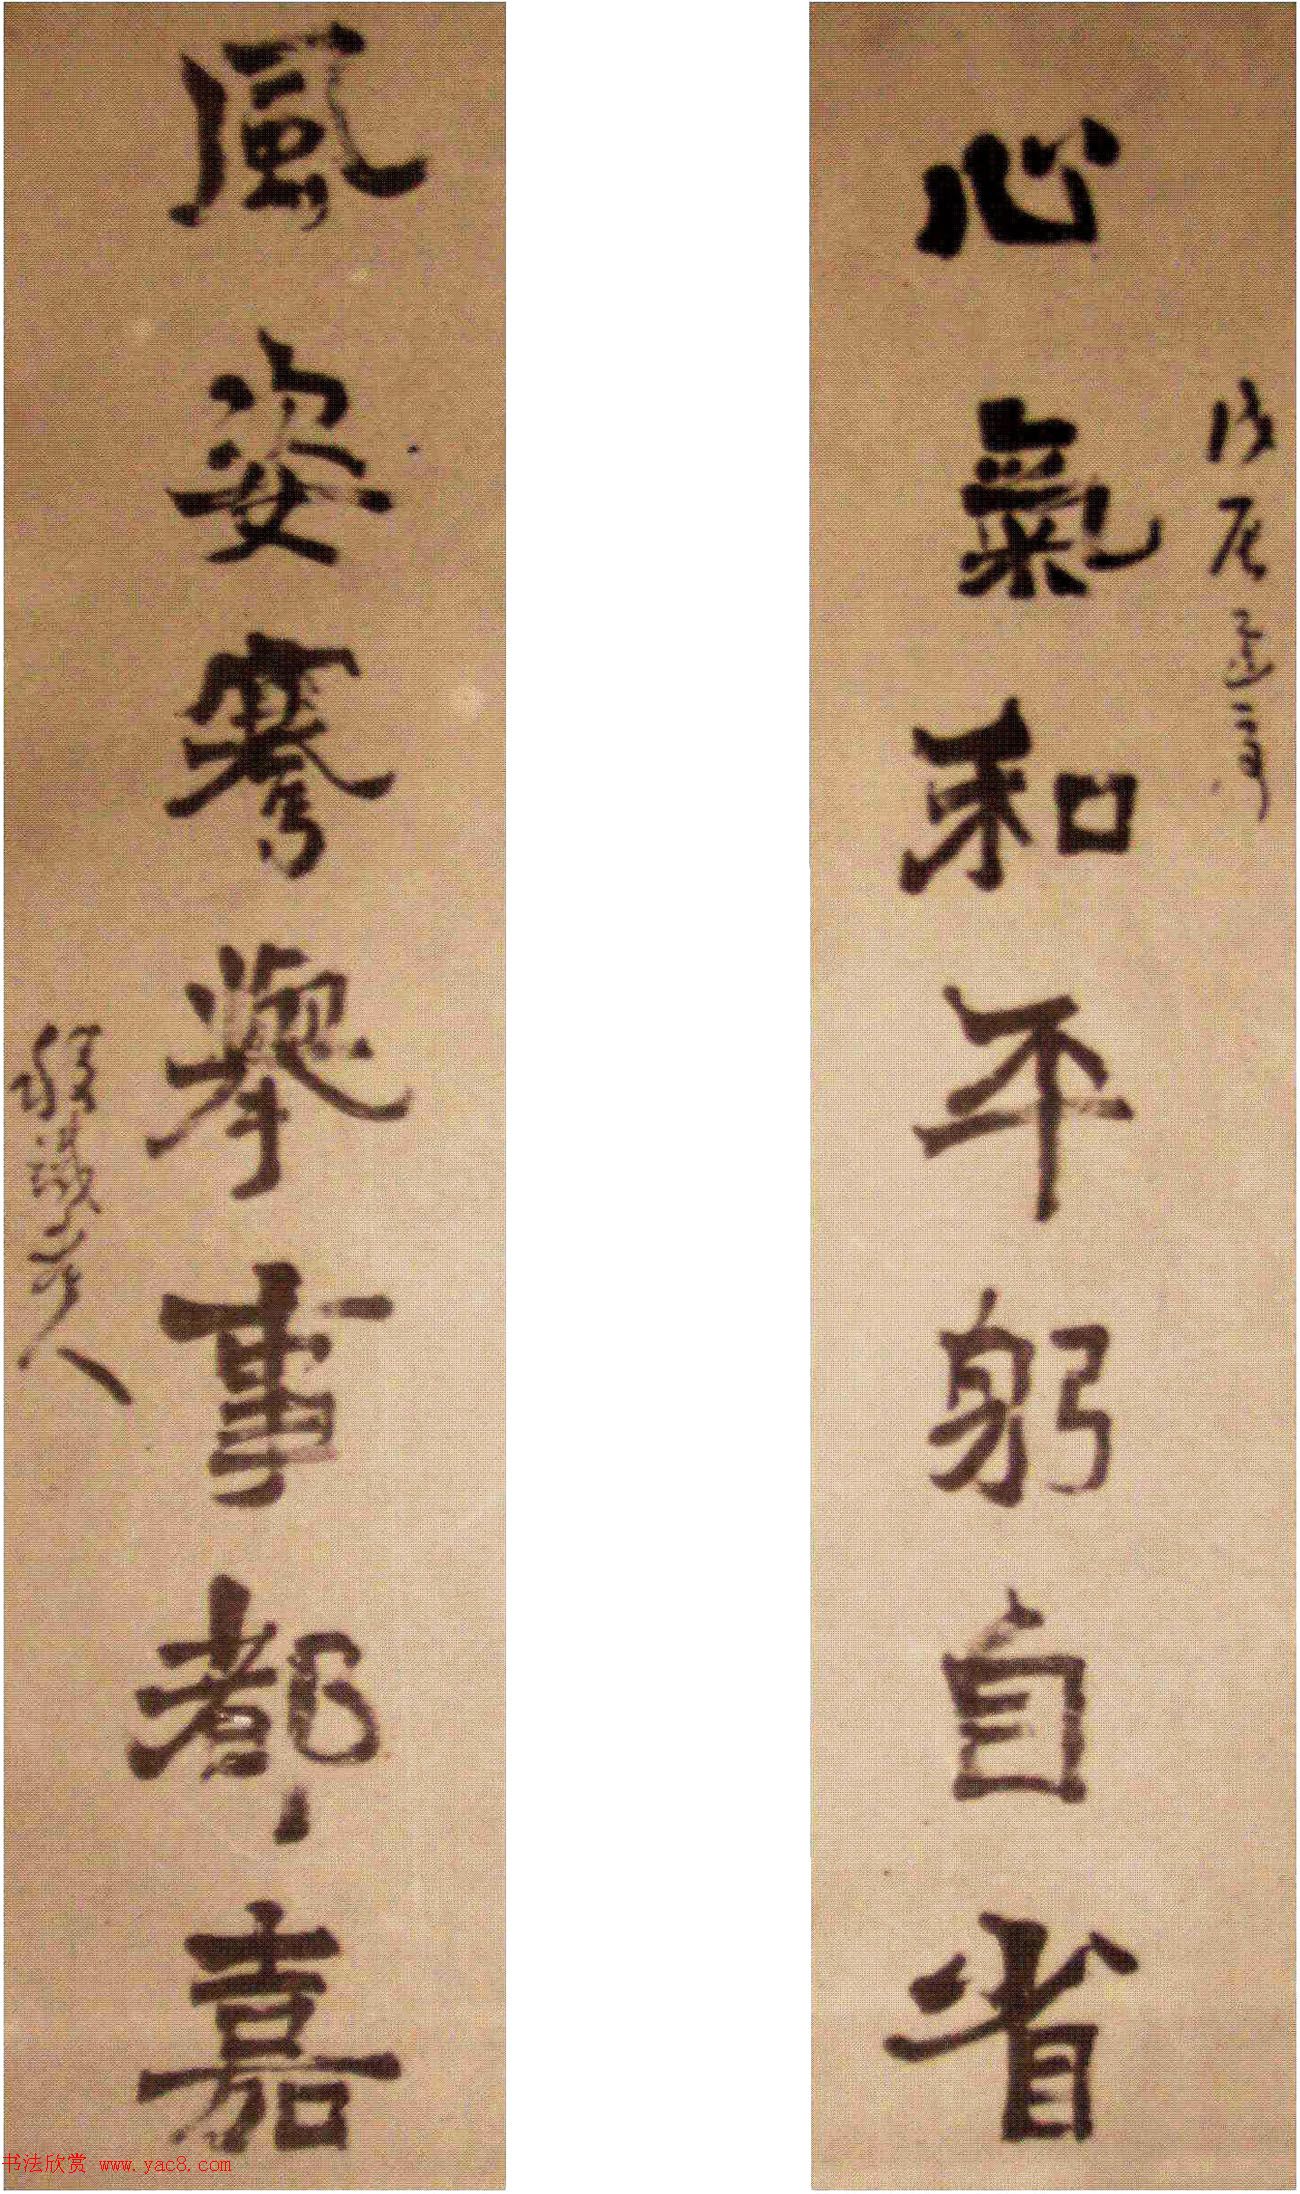 心氣和平躬自省
戊辰
風姿騫舉事都嘉
老人
书法欣赏 www.yac8.com